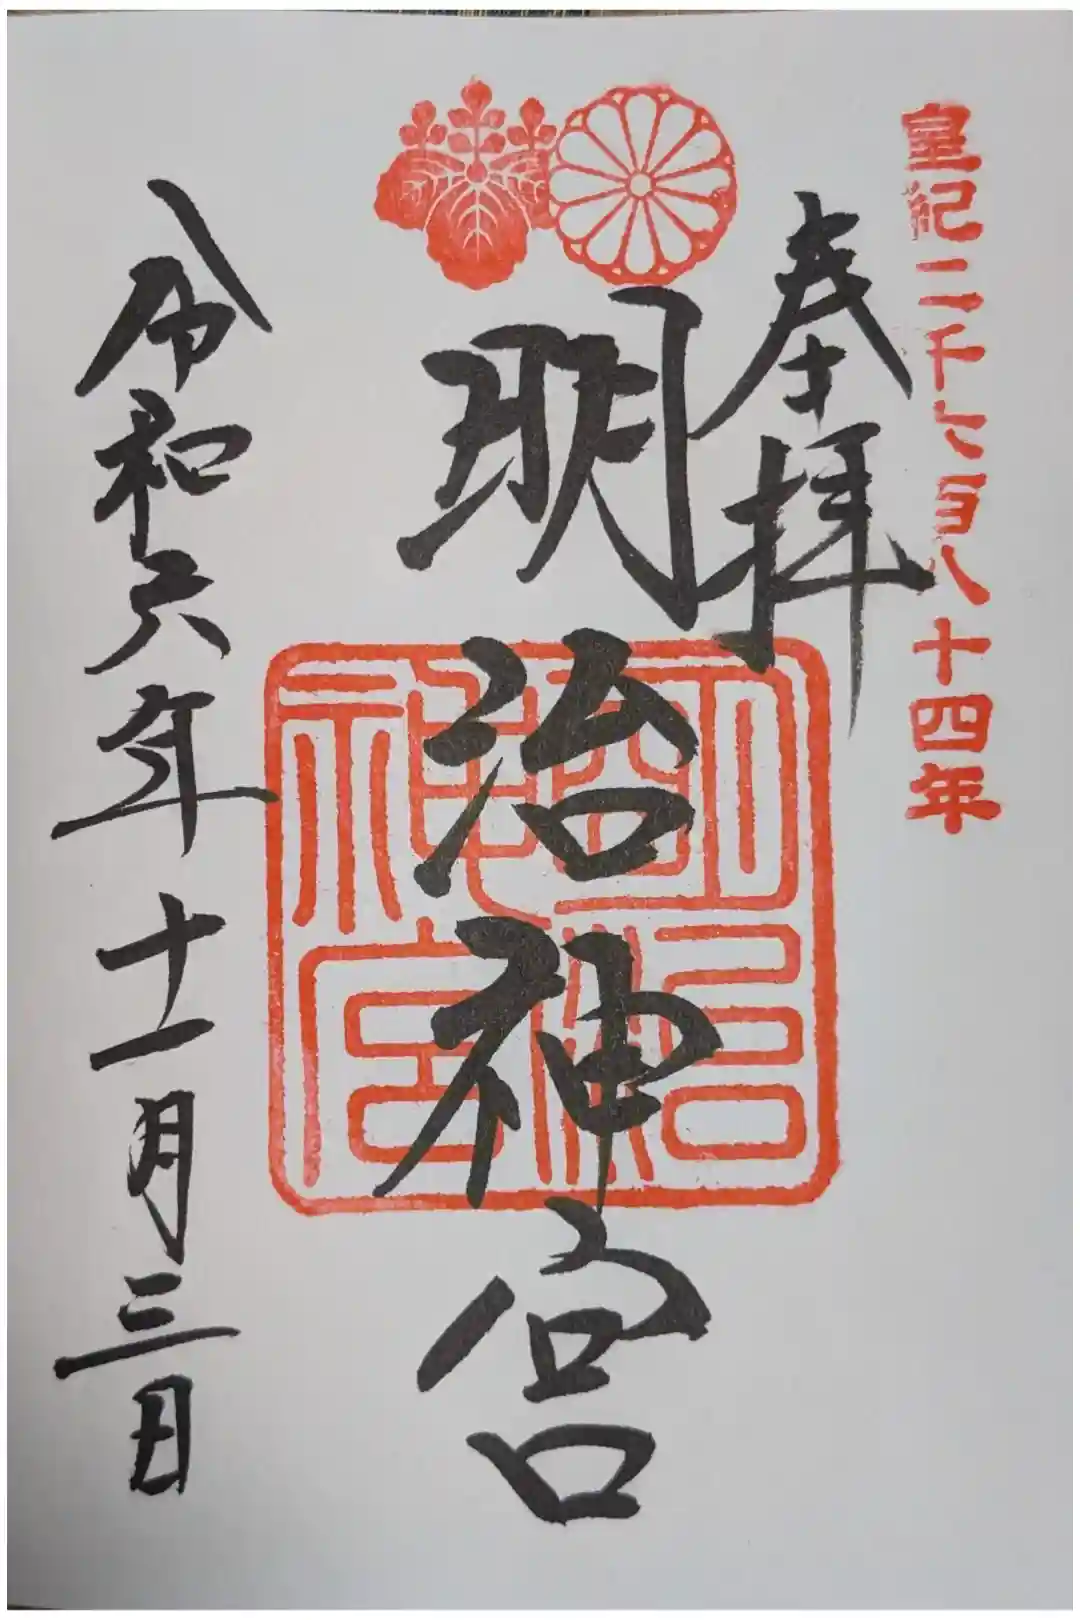 皇紀二千六百八十四年
奉拝
明治神宮
明治神宮
令和六年十一月三日